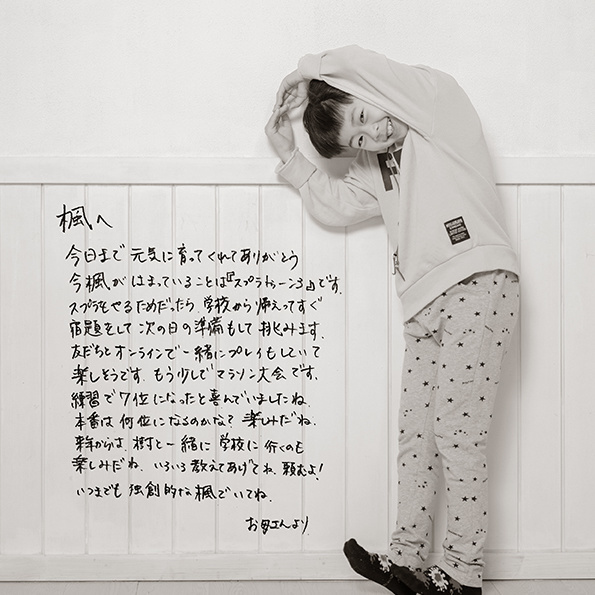 楓へ
今日まで元気に育ってくれてありがとう
今楓がはまっていることは『スプラトゥーン3』です。
スプラをやるためだったら、学校から帰ってすぐ
宿題をして次の日の準備もして挑みます。
友だちとオンラインで一緒にプレイもしていて
楽しそうです。もう少しでマラソン大会です。
練習で7位になったと喜んでいましたね。
本番は何位になるのかな？楽しみだね。
来年からは樹と一緒に学校に行くのも
楽しみだね。いろいろ教えてあげてね、頼むよ！
いつまでも独創的な楓でいてね。
お母さんより